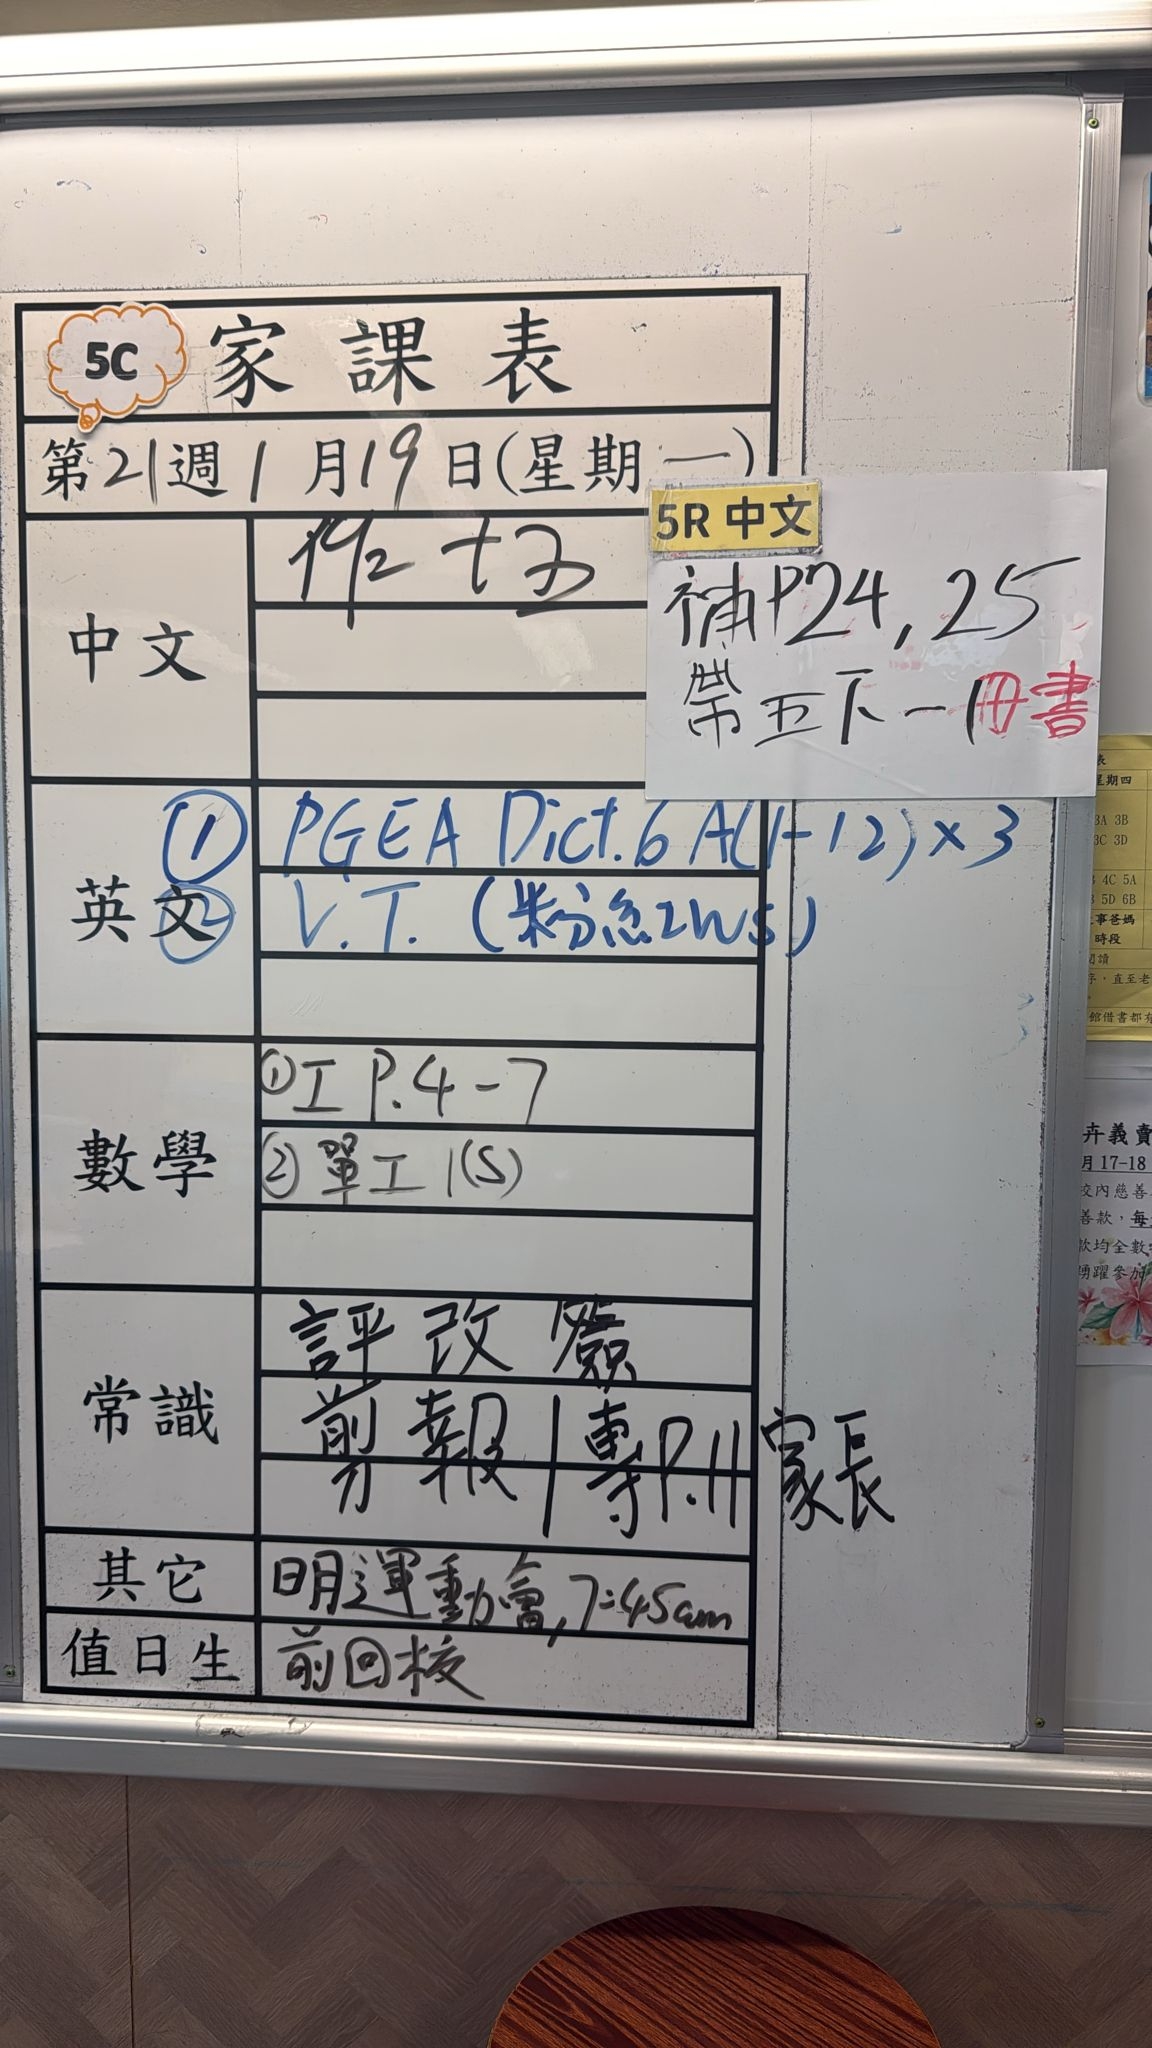 5C 家課表
第21週1月19日(星期一)
5R 中文
補P24, 25
帶五下一冊書
中文
十五
英文
① PGEA Dict. 6A(1-12) × 3
② V.T. (粉紅2WS)
數學
① 工 P.4-7
② 單工1(S)
常識
評改簽
剪報1專P.11家長
其它
明運動會, 7:45am
值日生
前回校
表
星期四
3A 3B
3C 3D
4C 5A
5D 6B
事爸媽
時段
閱讀
序,直至老
館借書都有
卉義賣
月17-18
校內慈善
善款,每
款均全數
踴躍參加